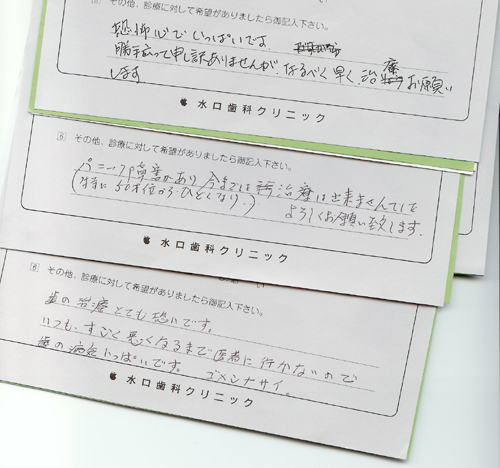 その他、診療に対して希望がありましたら御記入下さい。
恐怖心で いっぱいです。
勝手言って申し訳ありませんが、なるべく早く、治療お願い
します
水口歯科クリニック
⑤ その他、診療に対して希望がありましたら御記入下さい。
パニック障害があり 今までは 治療は出来ませんでした
(特に50才位から ひどくなり。) よろしくお願い致します。
水口歯科クリニック
⑥ その他、診療に対して希望がありましたら御記入下さい。
歯の治療とても恐いです。
いつも、すごく悪くなるまで医者に行かないので
歯の病気いっぱいです。 ゴメンナサイ。
水口歯科クリニック